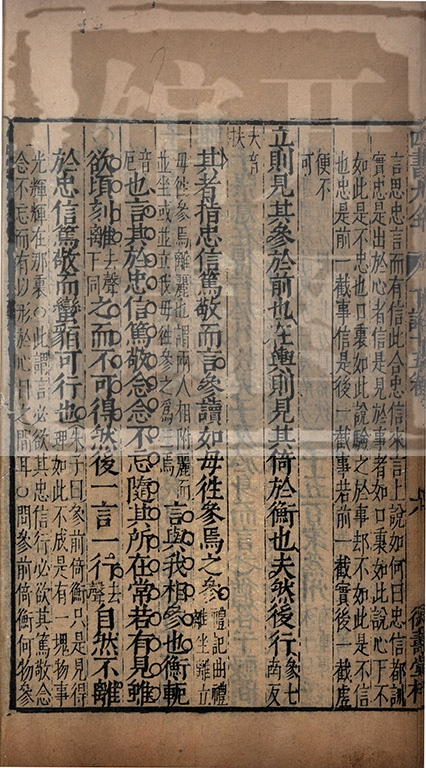 言思忠言而有信此合忠信來言上說如何曰忠信都訓
實忠是出於心者信是見於事者如口裏如此說心下不
如此是不忠也口裏如此說驗之於事却不如此是不信
也忠是前一截事信是後一截事若前一截實後一截虛
便不
可
立則見其參於前也在輿則見其倚於衡也夫然後行參七南反
夫音扶
其者指忠信篤敬而言參讀如毋往參焉之參禮記曲禮離坐離立
毋徃參焉離麗也謂兩人相附麗而
並坐或並立我毋徃參之爲三焉言與我相參也衡軛
音厄也言其於忠信篤敬念念不忘隨其所在常若有見雖
欲頃刻離去聲下同之而不可得然後一言一行去聲自然不離
於忠信篤敬而蠻貊可行也朱子曰參前倚衡只是見得理如此不成是有一塊物事
光輝輝在那裏○此謂言必欲其忠信行必欲其篤敬念
念不忘而有以形於心目之間耳○問參前倚衡何物參